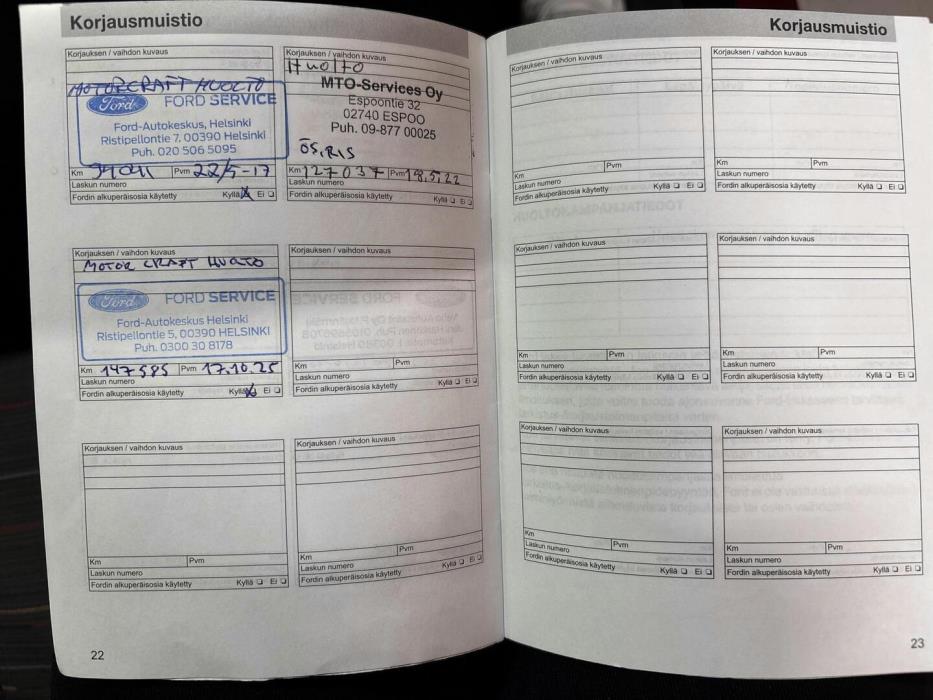 Korjausmuistio
Korjauksen / vaihdon kuvaus
MOTORCRAFT HUOLTO
Ford FORD SERVICE
Ford-Autokeskus, Helsinki
Ristipellontie 7, 00390 Helsinki
Puh. 020 506 5095
Km Pvm 22/5-17
Laskun numero
Fordin alkuperäisosia käytetty Kyllä Ei
Korjauksen / vaihdon kuvaus
Huolto
MTO-Services Oy
Espoontie 32
02740 ESPOO
Puh. 09-877 00025
ÖS, RIS
Km 127037 Pvm 18.5.22
Laskun numero
Fordin alkuperäisosia käytetty Kyllä Ei
Korjauksen / vaihdon kuvaus
MOTOR CRAFT HUOLTO
Ford FORD SERVICE
Ford-Autokeskus Helsinki
Ristipellontie 5, 00390 HELSINKI
Puh. 0300 30 8178
Km 147585 Pvm 17.10.25
Laskun numero
Fordin alkuperäisosia käytetty Kyllä Ei
Korjauksen / vaihdon kuvaus
Km Pvm
Laskun numero
Fordin alkuperäisosia käytetty Kyllä Ei
Korjauksen / vaihdon kuvaus
Km Pvm
Laskun numero
Fordin alkuperäisosia käytetty Kyllä Ei
Korjauksen / vaihdon kuvaus
Km Pvm
Laskun numero
Fordin alkuperäisosia käytetty Kyllä Ei
22
Korjausmuistio
Korjauksen / vaihdon kuvaus
Km Pvm
Laskun numero
Fordin alkuperäisosia käytetty Kyllä Ei
Korjauksen / vaihdon kuvaus
Km Pvm
Laskun numero
Fordin alkuperäisosia käytetty Kyllä Ei
Korjauksen / vaihdon kuvaus
Km Pvm
Laskun numero
Fordin alkuperäisosia käytetty Kyllä Ei
Korjauksen / vaihdon kuvaus
Km Pvm
Laskun numero
Fordin alkuperäisosia käytetty Kyllä Ei
Korjauksen / vaihdon kuvaus
Km Pvm
Laskun numero
Fordin alkuperäisosia käytetty Kyllä Ei
Korjauksen / vaihdon kuvaus
Km Pvm
Laskun numero
Fordin alkuperäisosia käytetty Kyllä Ei
23